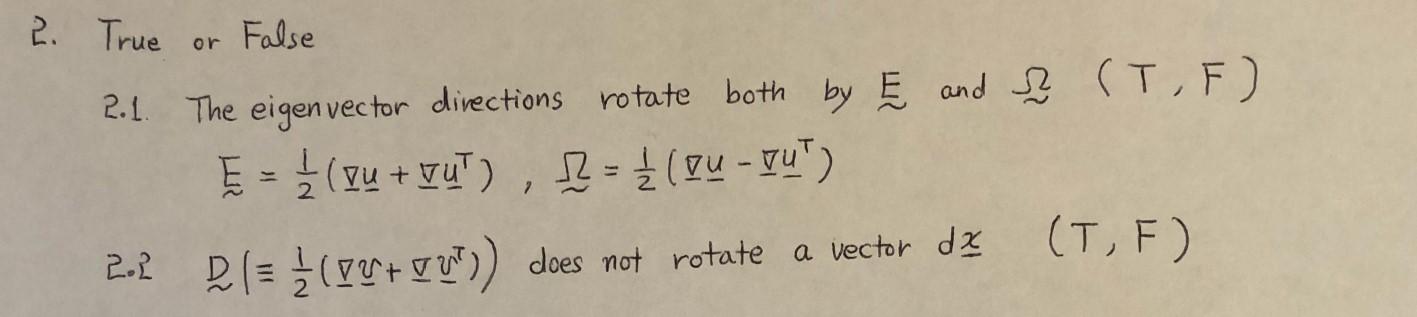 2. True or False
2.1. The eigenvector directions rotate both by Ḛ and Ω̰ (T, F)
Ḛ = ½(∇u̲ + ∇u̲ᵀ) , Ω̰ = ½(∇u̲ - ∇u̲ᵀ)
2.2 D̰(≡ ½(∇v̲ + ∇v̲ᵀ)) does not rotate a vector dx̲ (T, F)